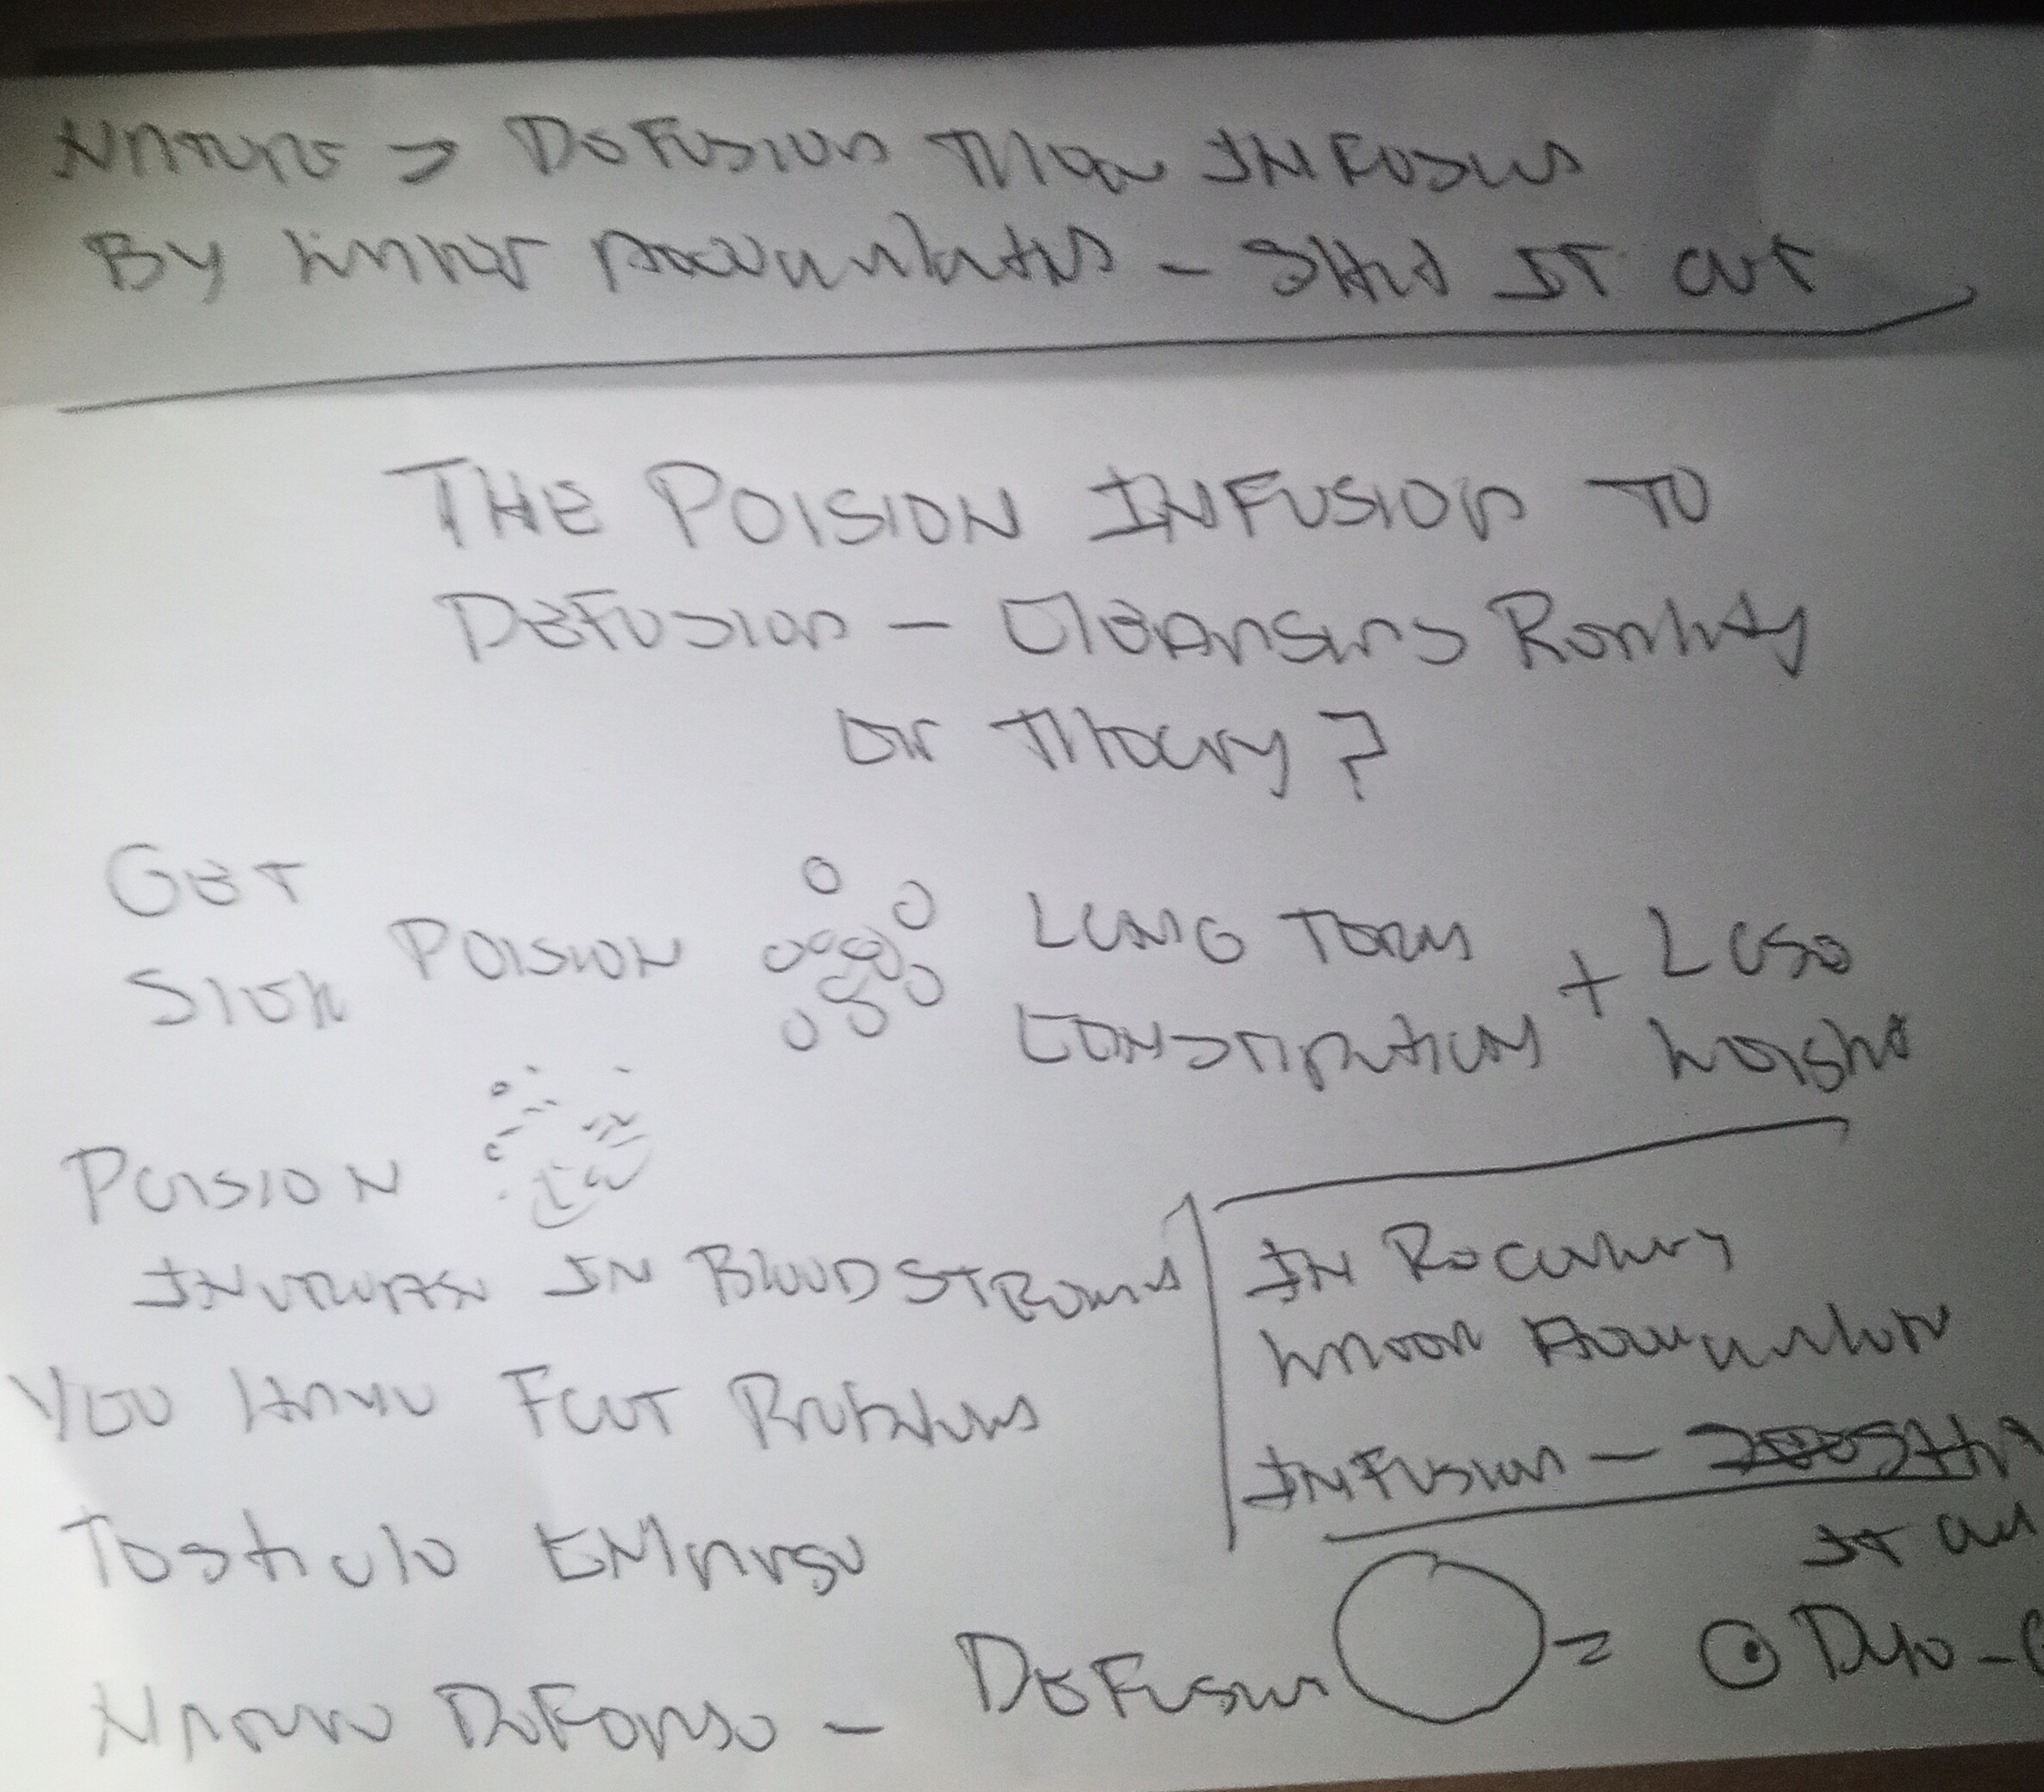 NATURE > DEFUSION THAN INFUSION
By WATER ACCUMULATION - SHED IT OUT
THE POISION INFUSION TO
DEFUSION - CLEANSING Reality
or THEORY?
GET
SICK POISION LONG TERM + LOSE
CONSTIPATION WEIGHT
POISION
IN BLOODSTREAM
YOU HAVE FOOT PROBLEMS
IN RECOVERY
WATER ACCUMULATION
INFUSION -
IT OUT
NATURE DEFENSE - DEFUSION = DYE -